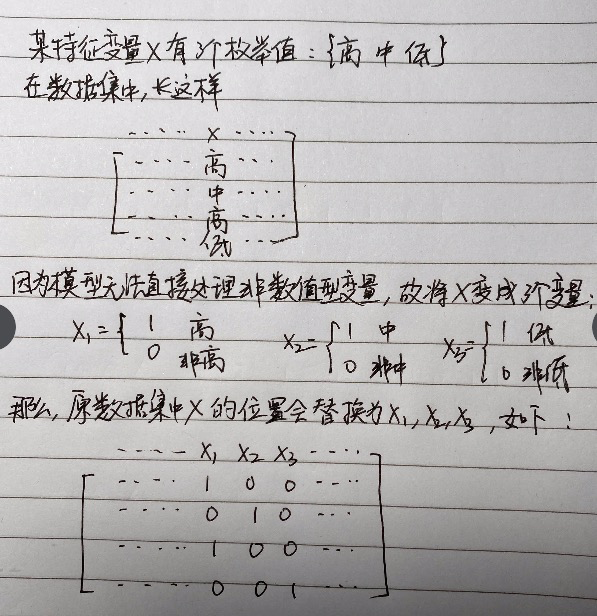 某特征变量X有3个枚举值：{高 中 低}
在数据集中，长这样
---- X ----
---- 高 ----
---- 中 ----
---- 高 ----
---- 低 ----
因为模型无法直接处理非数值型变量，故将X变成3个变量：
X₁={ 1 高 X₂={ 1 中 X₃={ 1 低
0 非高 0 非中 0 非低
那么，原数据集中X的位置会替换为X₁,X₂,X₃，如下：
---- X₁ X₂ X₃ ----
---- 1 0 0 ----
---- 0 1 0 ----
---- 1 0 0 ----
---- 0 0 1 ----